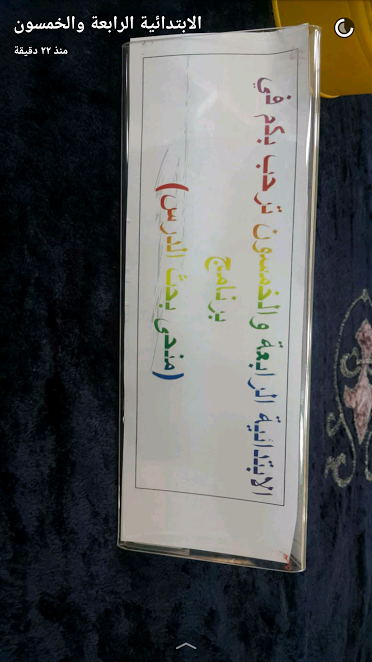 الابتدائية الرابعة والخمسون
منذ ٢٢ دقيقة
الابتدائية الرابعة والخمسون ترحب بكم في
برنامج
(منحى بحث الدرس)